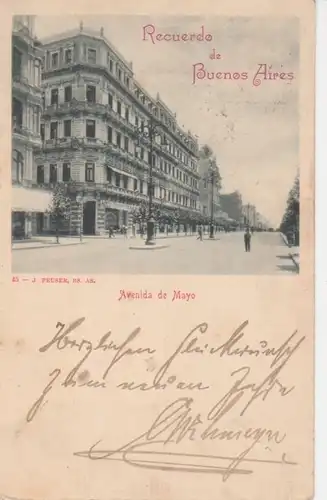 Recuerdo
de
Buenos Aires
J. PEUSER, BS. AS.
Avenida de Mayo
Herzlichen Glückwunsch
zum neuen Jahre